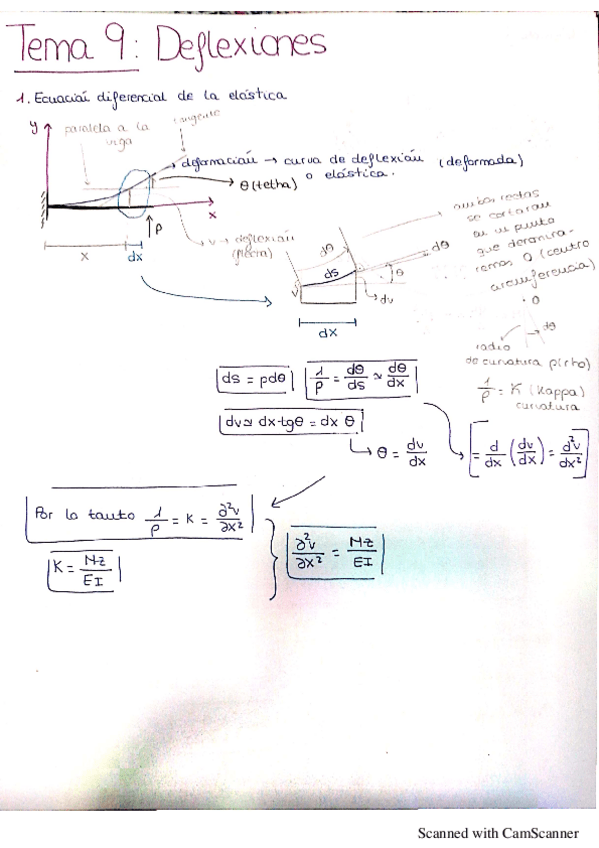 Tema 9: Deflexiones
1. Ecuación diferencial de la elástica
y
paralela a la
viga
tangente
deformación → curva de deflexión (deformada)
o elástica.
θ (tetha)
x
P
v → deflexión
(flecha)
x
dx
dθ
ds
dθ
θ
v
dv
dx
ambas rectas
se cortarán
en un punto
que denomina-
remos O (centro
circunferencia)
O
dθ
radio
de curvatura ρ(rho)
1/ρ = K (Kappa)
curvatura
ds = ρdθ
1/ρ = dθ/ds ≃ dθ/dx
dv ≃ dx·tgθ = dx θ
θ = dv/dx
= d/dx (dv/dx) = d²v/dx²
Por lo tanto 1/ρ = K = ∂²v/∂x²
K = Mz/EI
∂²v/∂x² = Mz/EI
Scanned with CamScanner